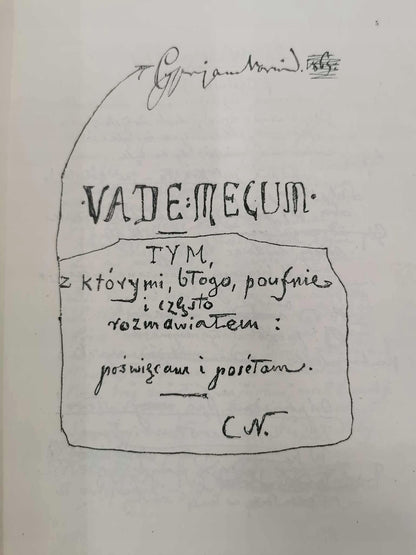 Cyprjan Norwid.
·VADE:MECUM·
TYM,
z którymi, błogo, poufnie
i często
rozmawiałem :
poświęcam i posełam.
C N.